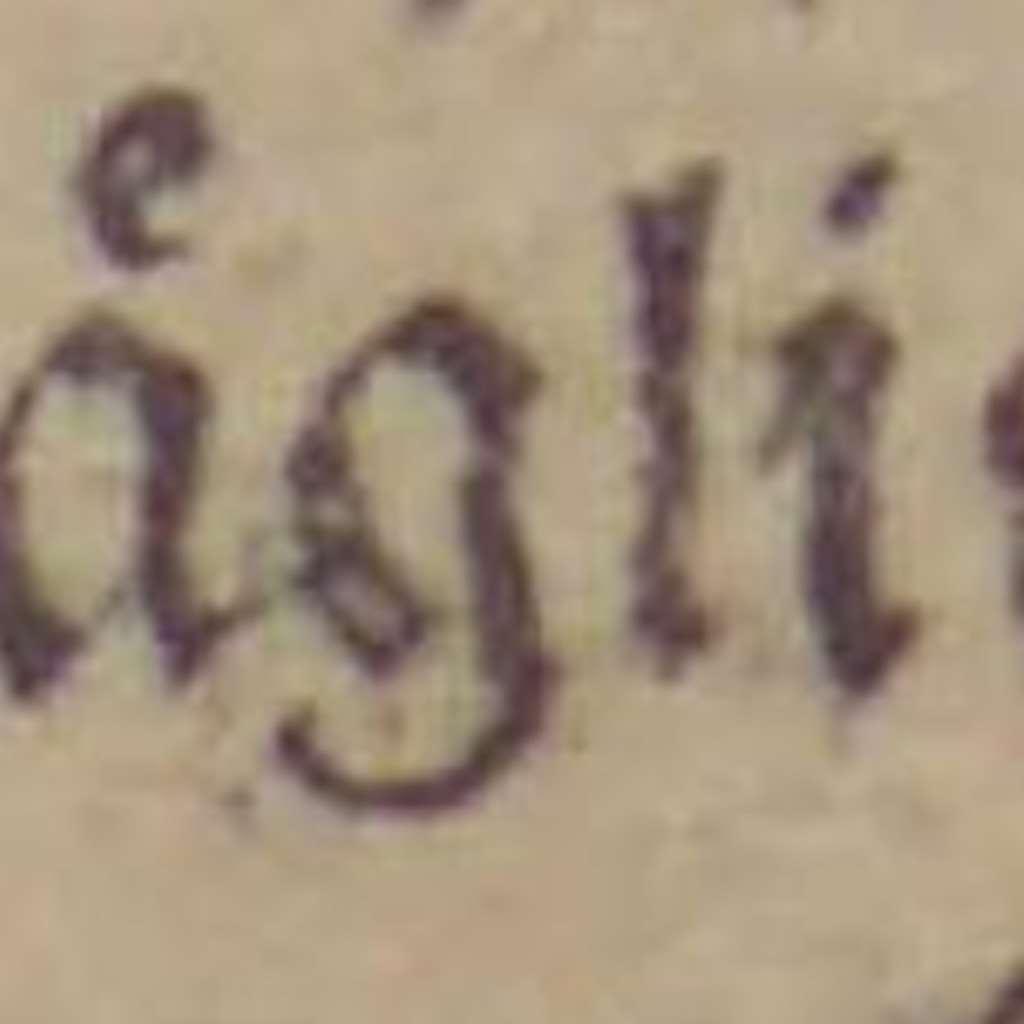 aͤgli